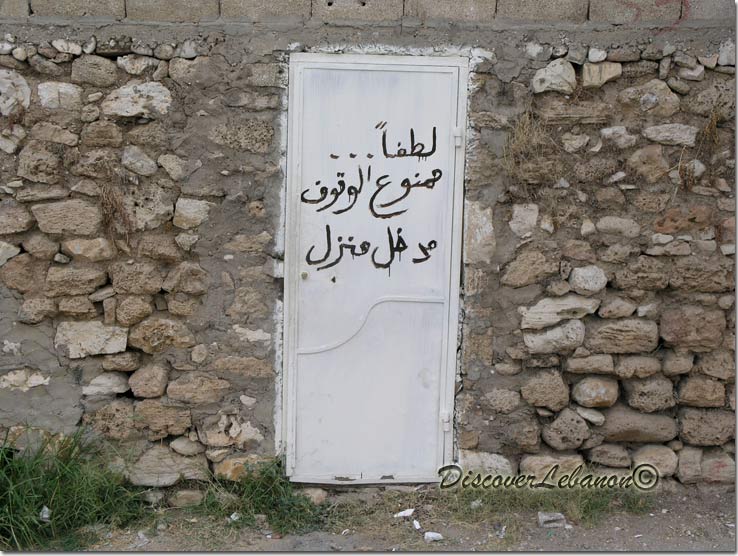 لطفاً...
ممنوع الوقوف
مدخل منزل
DiscoverLebanon©